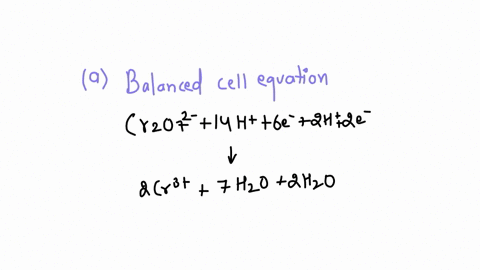 (a) Balanced cell equation
Cr2O7²⁻ + 14H⁺ + 6e⁻ + 2H⁺ + 2e⁻
↓
2Cr³⁺ + 7H₂O + 2H₂O